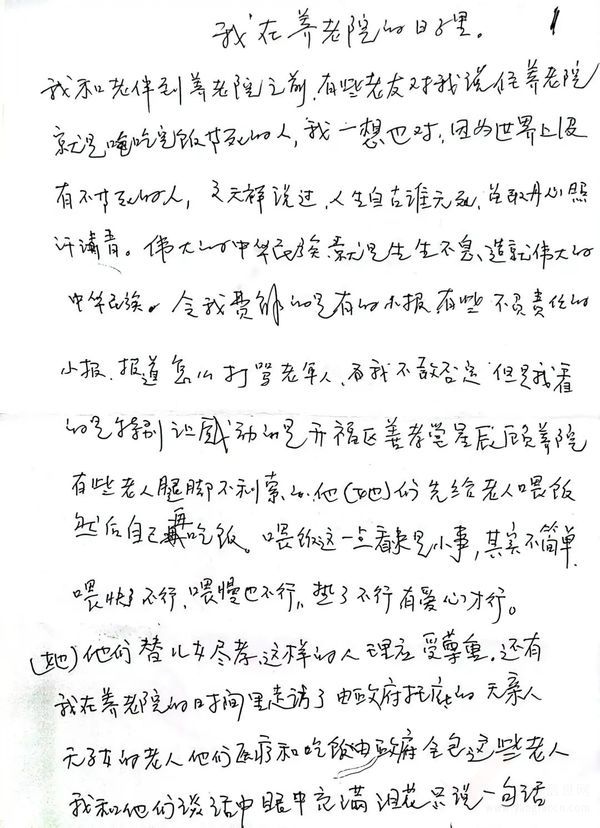 我在养老院的日子里。 1
我和老伴到养老院之前,有些老友对我说住养老院
就是吃完饭等死的人,我一想也对,因为世界上没
有不等死的人,文天祥说过,人生自古谁无死,留取丹心照
汗清青。伟大的中华民族就是生生不息、造就伟大的
中华民族。令我费解的是有的小报有些不负责任的
小报.报道怎么打骂老年人,而我不敢否定但是我看
的是特别让我感动的是开福区善孝堂星辰颐养院
有些老人腿脚不利索的他(她)们先给老人喂饭
然后自己再吃饭。喂饭这一点看来是小事,其实不简单.
喂快了不行、喂慢也不行,热了不行有爱心才行。
(她)他们替儿女尽孝.这样的人理应受尊重.还有
我在养老院的时间里走访了由政府托底的无亲人
无子女的老人他们医疗和吃饭由政府全包这些老人
我和他们谈话中眼中充满泪花只说一句话